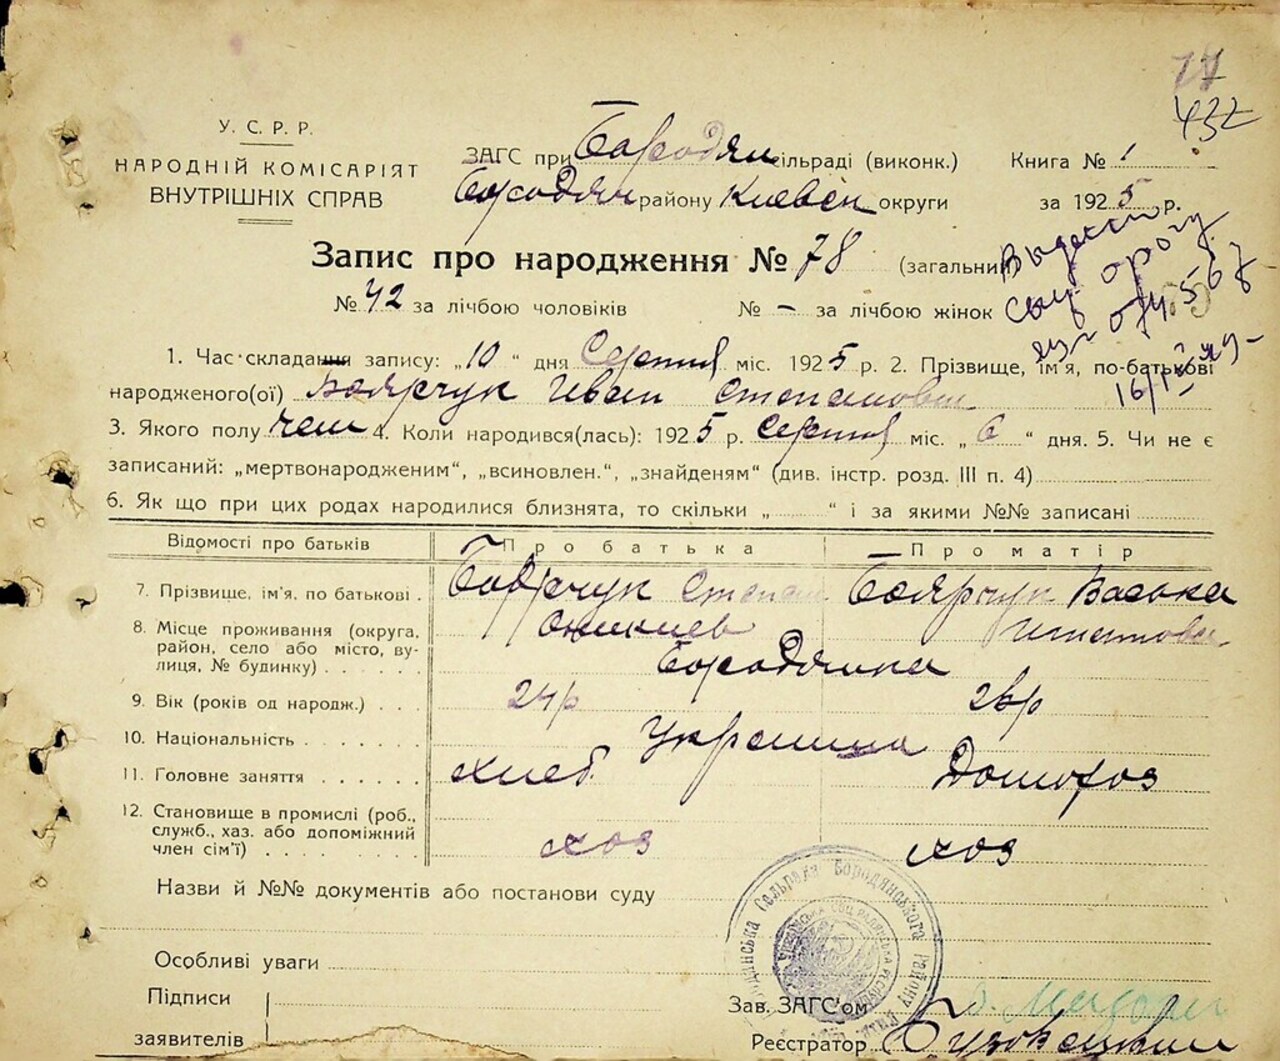 77
432
У. С. Р. Р.
НАРОДНІЙ КОМІСАРІЯТ
ВНУТРІШНІХ СПРАВ
ЗАГС при Бородян сільраді (виконк.) Книга № 1
Бородян району Киевск округи за 1925 р.
Запис про народження № 78 (загальний)
№ 42 за лічбою чоловіків № – за лічбою жінок
1. Час складання запису: „10“ дня Серпня міс. 1925 р. 2. Прізвище, ім'я, по-батькові
народженого(ої) Боярчук Иван Степанович
3. Якого полу чол 4. Коли народився(лась): 1925 р. Серпня міс. „6“ дня. 5. Чи не є
записаний: „мертвонародженим“, „всиновлен.“, „знайденям“ (див. інстр. розд. III п. 4)
6. Як що при цих родах народилися близнята, то скільки „ “ і за якими №№ записані
Відомості про батьків Про батька Про матір
7. Прізвище, ім'я, по батькові . Боярчук Степан Боярчук
8. Місце проживання (округа,
район, село або місто, ву-
лиця, № будинку) . . . . Бородянка
9. Вік (років од народж.) . . . 24р 26р
10. Національність . . . . . . .
11. Головне заняття . . . . . . хлеб. Домохоз
12. Становище в промислі (роб.,
служб., хаз. або допоміжний
член сім'ї) . . . . . . . . хоз хоз
Назви й №№ документів або постанови суду
Особливі уваги
Підписи
заявителів
Зав. ЗАГС'ом
Реєстратор